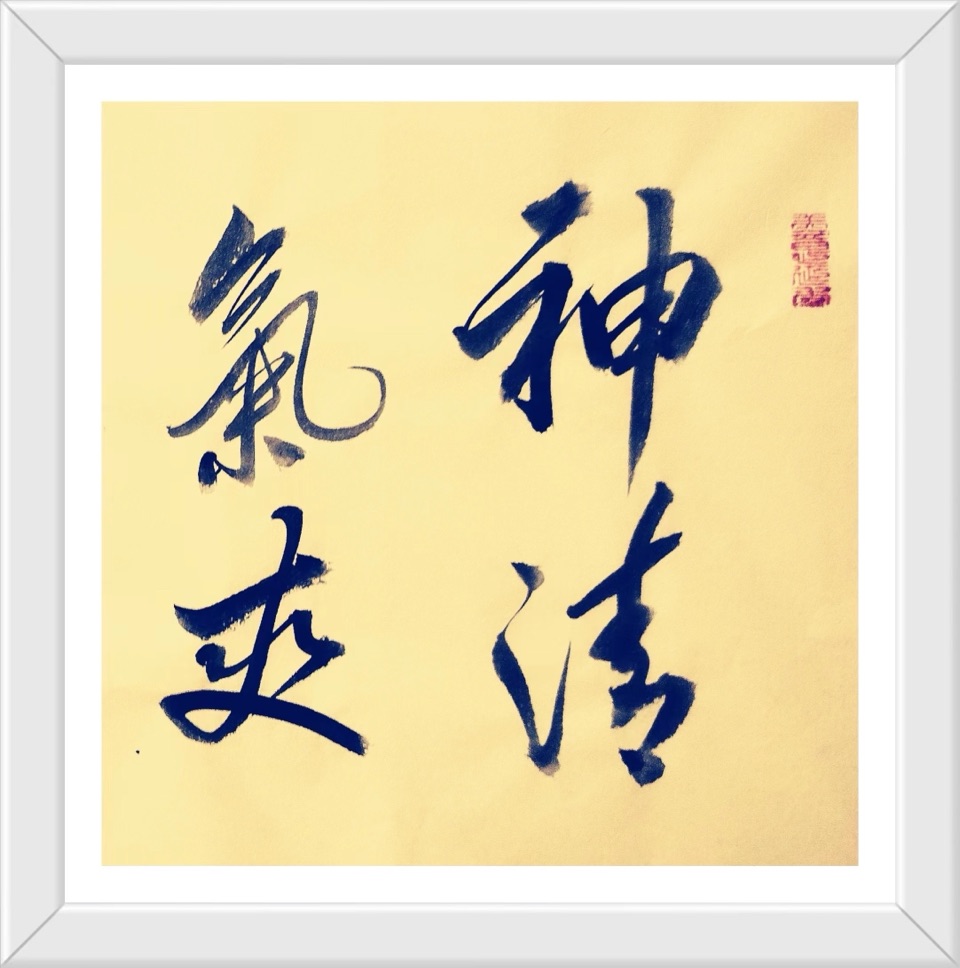 神清
氣爽